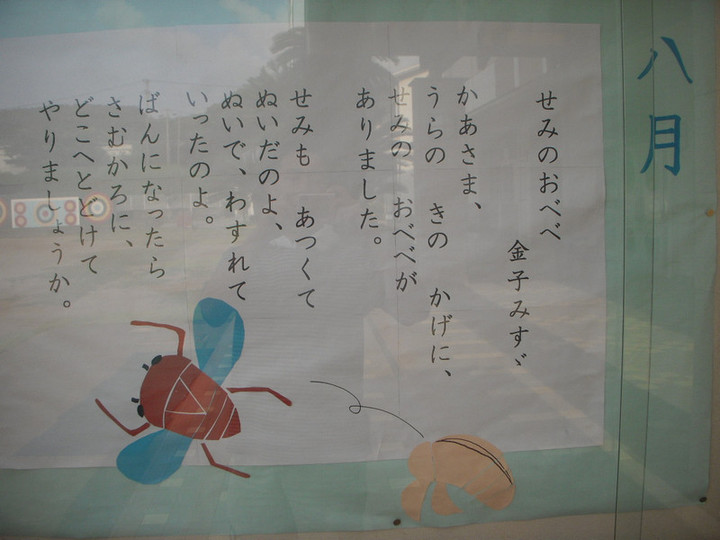 八月
せみのおべべ
金子みすゞ
かあさま、
うらの きの かげに、
せみの おべべが
ありました。
せみも あつくて
ぬいだのよ、
ぬいで、わすれて
いったのよ。
ばんになったら
さむかろに、
どこへとどけて
やりましょうか。